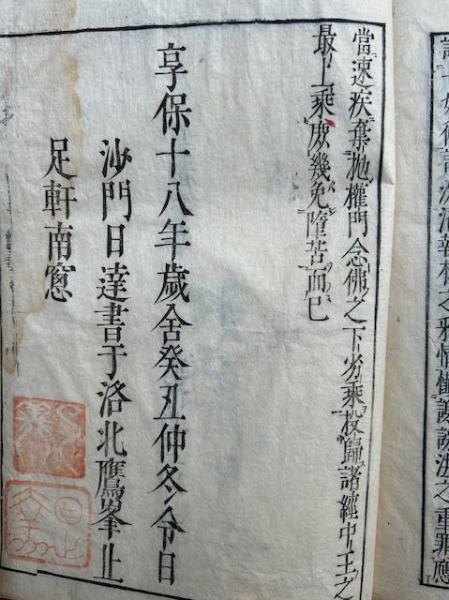 之邪情懺謝謗法之重罪應
當速疾棄抛權門念佛之下劣乘投歸諸經中王之
最上乘庶幾免墮苦而已
享保十八年歲舍癸丑仲冬令日
沙門日達書于洛北鷹峯止
足軒南窻